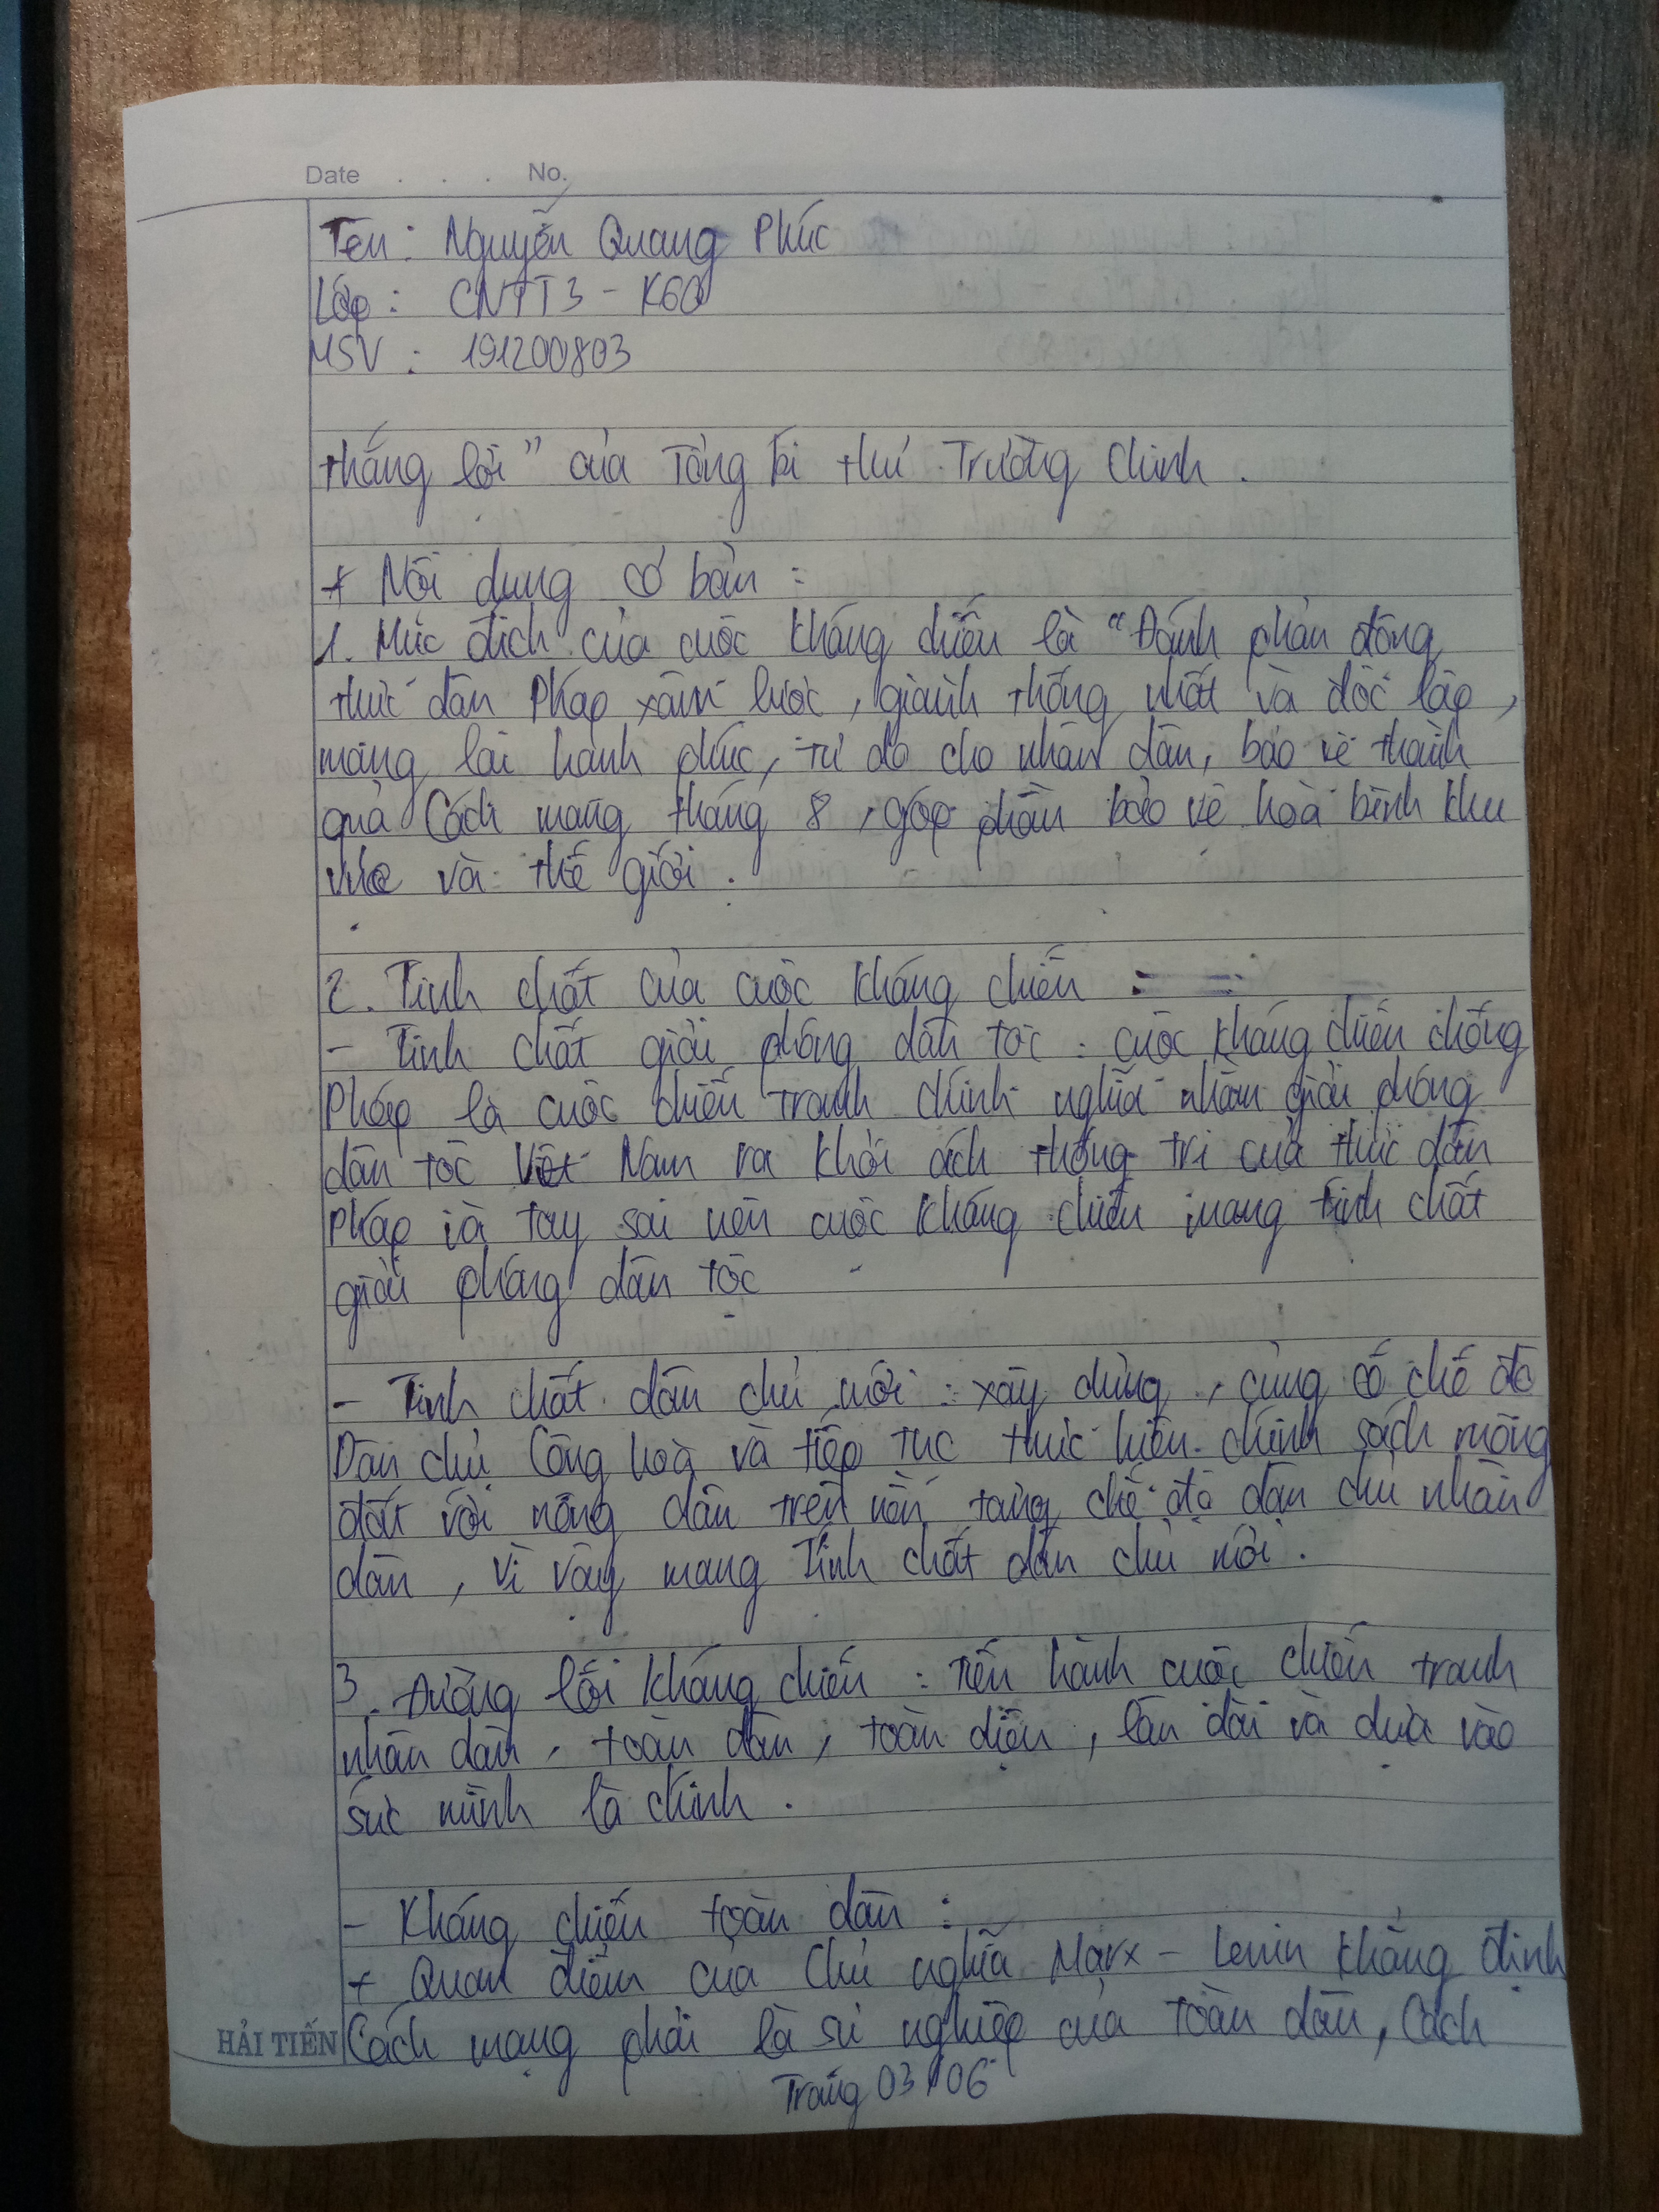 Date . . . No.
Tên: Nguyễn Quang Phúc
Lớp: CNTT3 - K60
MSV: 191200803
thắng lợi" của Tổng bí thư Trường Chinh.
+ Nội dung cơ bản:
1. Mục đích của cuộc kháng chiến là "Đánh phản động
thực dân Pháp xâm lược, giành thống nhất và độc lập,
mang lại hạnh phúc, tự do cho nhân dân, bảo vệ thành
quả Cách mạng tháng 8, góp phần bảo vệ hoà bình khu
vực và thế giới.
2. Tính chất của cuộc kháng chiến:
- Tính chất giải phóng dân tộc: cuộc kháng chiến chống
Pháp là cuộc chiến tranh chính nghĩa nhằm giải phóng
dân tộc Việt Nam ra khỏi ách thống trị của thực dân
Pháp và tay sai nên cuộc kháng chiến mang tính chất
giải phóng dân tộc
- Tính chất dân chủ mới: xây dựng, củng cố chế độ
Dân chủ Cộng hoà và tiếp tục thực hiện chính sách ruộng
đất với nông dân trên nền tảng chế độ dân chủ nhân
dân, vì vậy mang tính chất dân chủ mới.
3. Đường lối kháng chiến: Tiến hành cuộc chiến tranh
nhân dân, toàn dân, toàn diện, lâu dài và dựa vào
sức mình là chính.
- Kháng chiến toàn dân:
+ Quan điểm của Chủ nghĩa Marx - Lenin khẳng định
Cách mạng phải là sự nghiệp của toàn dân, Cách
HẢI TIẾN
Trang 03/06